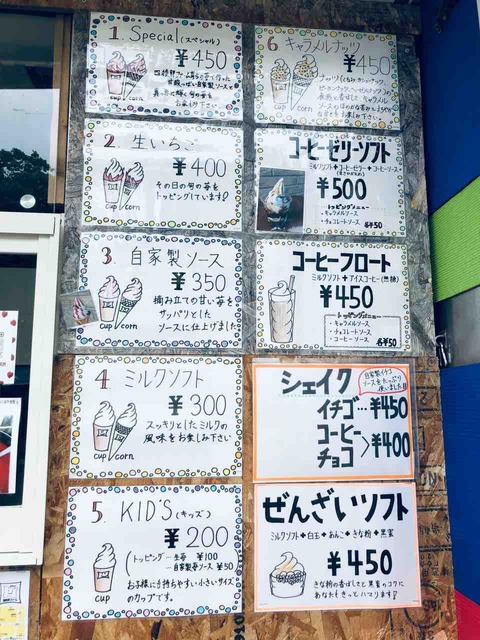 1. Special (スペシャル)
¥450
真っ赤に輝く旬の苺を
お楽しみ下さい
cup / corn
2 生いちご
¥400
今の旬の苺を
トッピングしています♪
cup / corn
3 自家製ソース
¥350
摘み立ての甘い苺を
サッパリとした
ソースに仕上げました
cup / corn
4 ミルクソフト
¥300
スッキリとしたミルクの
風味をお楽しみ下さい
cup / corn
5. KID'S (キッズ)
¥200
トッピング…生苺 ¥100
…自家製苺ソース ¥50
お子様に持ちやすい小さいサイズ
のカップです。
cup
6 キャラメルナッツ
¥450
cup / corn
コーヒーゼリーソフト
ミルクソフト◆コーヒーゼリー◆コーヒーソース
¥500
トッピングメニュー
・キャラメルソース
・チョコレートソース
各¥50
コーヒーフロート
ミルクソフト◆アイスコーヒー(無糖)
¥450
トッピングメニュー
・キャラメルソース
・チョコレートソース
・コーヒーソース
各¥50
シェイク
自家製イチゴ
ソースをたっぷり
使いました!!
イチゴ…¥450
コーヒー
チョコ
¥400
ぜんざいソフト
ミルクソフト◆白玉◆あんこ◆きな粉◆黒蜜
¥450
きな粉の香ばしさと黒蜜のコクに
あなたもきっとハマります!